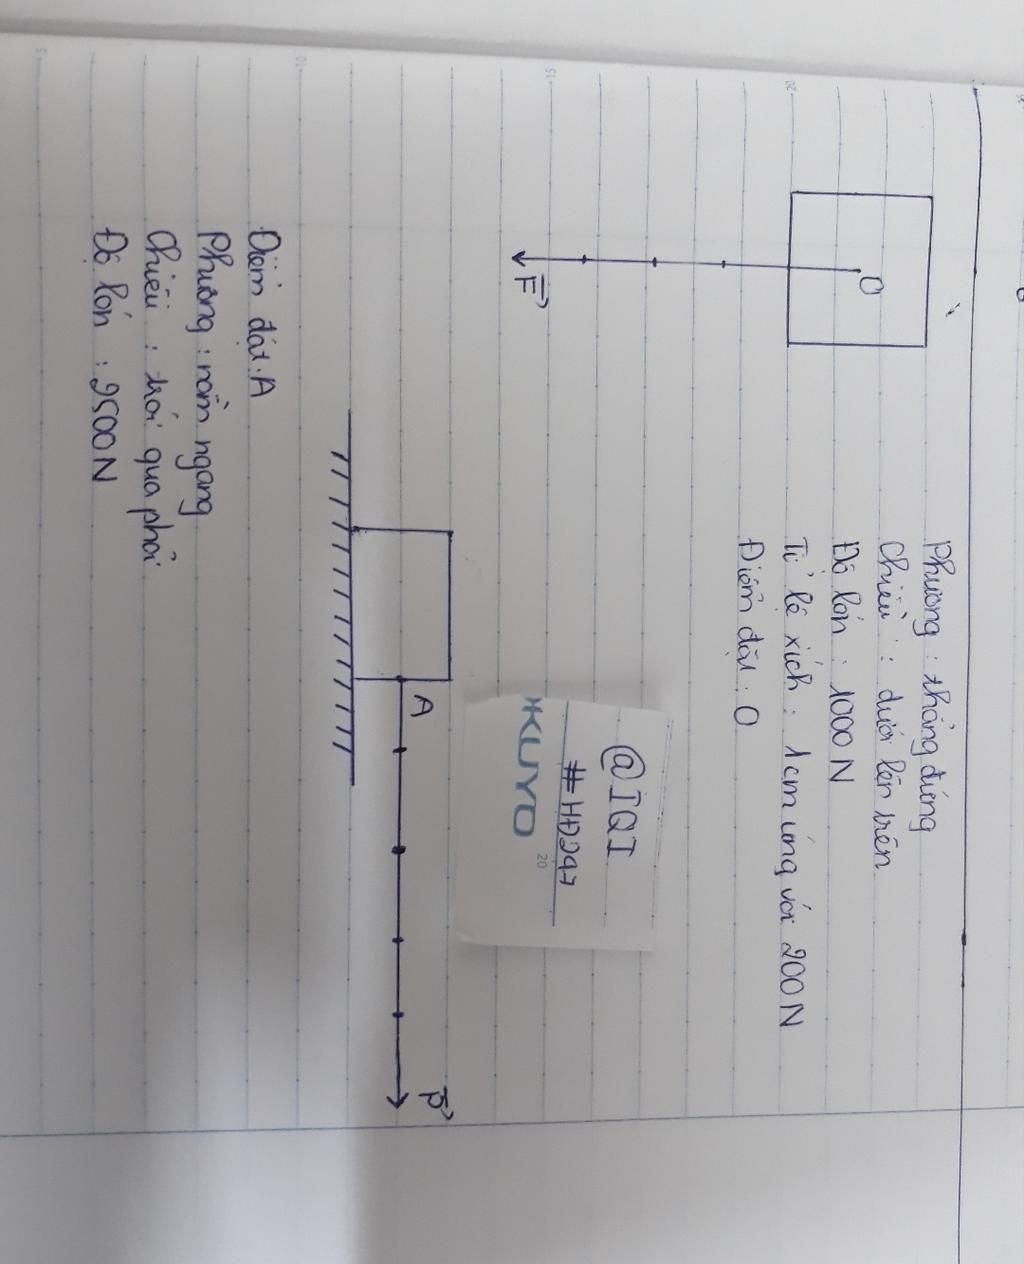 O
F
Phương : thẳng đứng
Chiều : dưới lên trên
Độ lớn : 1000 N
Tỉ lệ xích : 1cm ứng với 200 N
Điểm đặt : O
@IQI
#HĐ247
KUYO
20
A
P
Điểm đặt : A
Phương : nằm ngang
Chiều : trái qua phải
Độ lớn : 2500 N
20
15
10
5